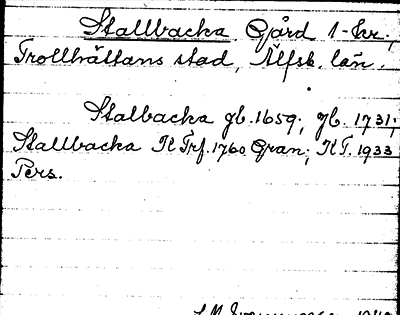 Stallbacka Gård 1-kr.,
Trollhättans stad, Älfsb. län.
Stalbacka jb. 1659; jb. 1731;
Stallbacka KTrf. 1760 Gran; KT. 1933
Pers.